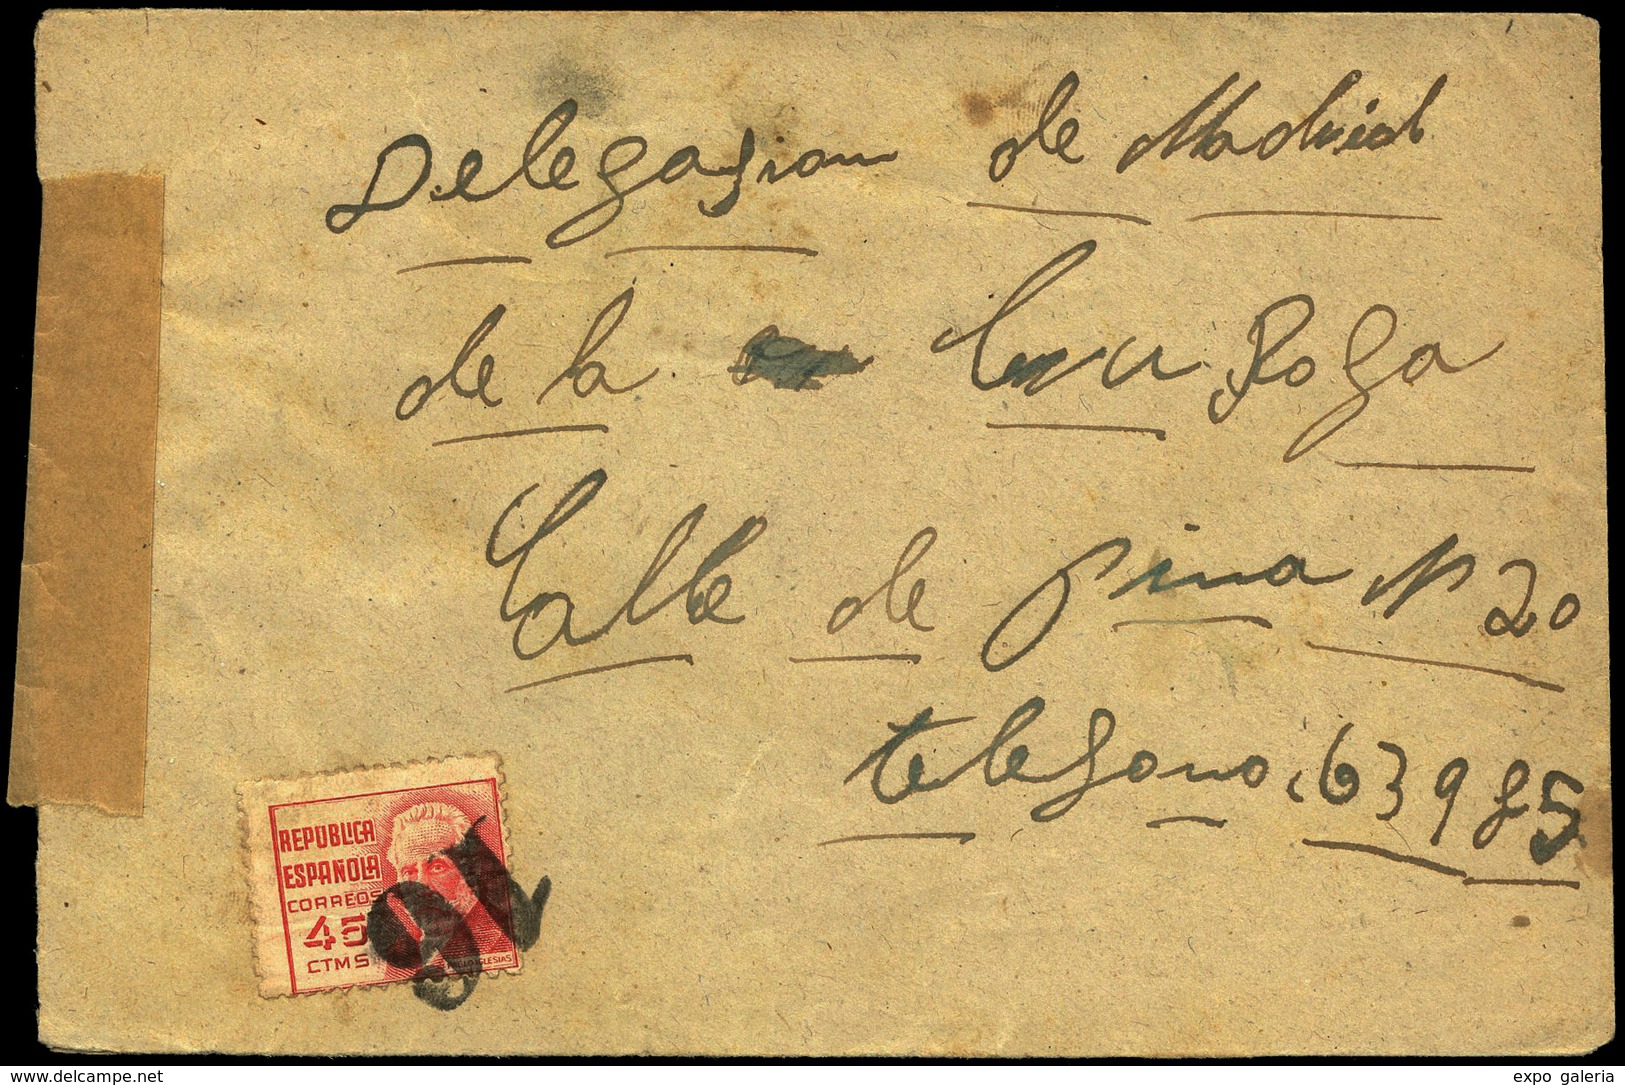 Delegasion de Madrid
de la Cruz Roga
Calle de Pina Nº 20
telegono 63985
REPUBLICA
ESPAÑOLA
CORREOS
45
CTMS
PABLO IGLESIAS
www.delcampe.net
expo galeria